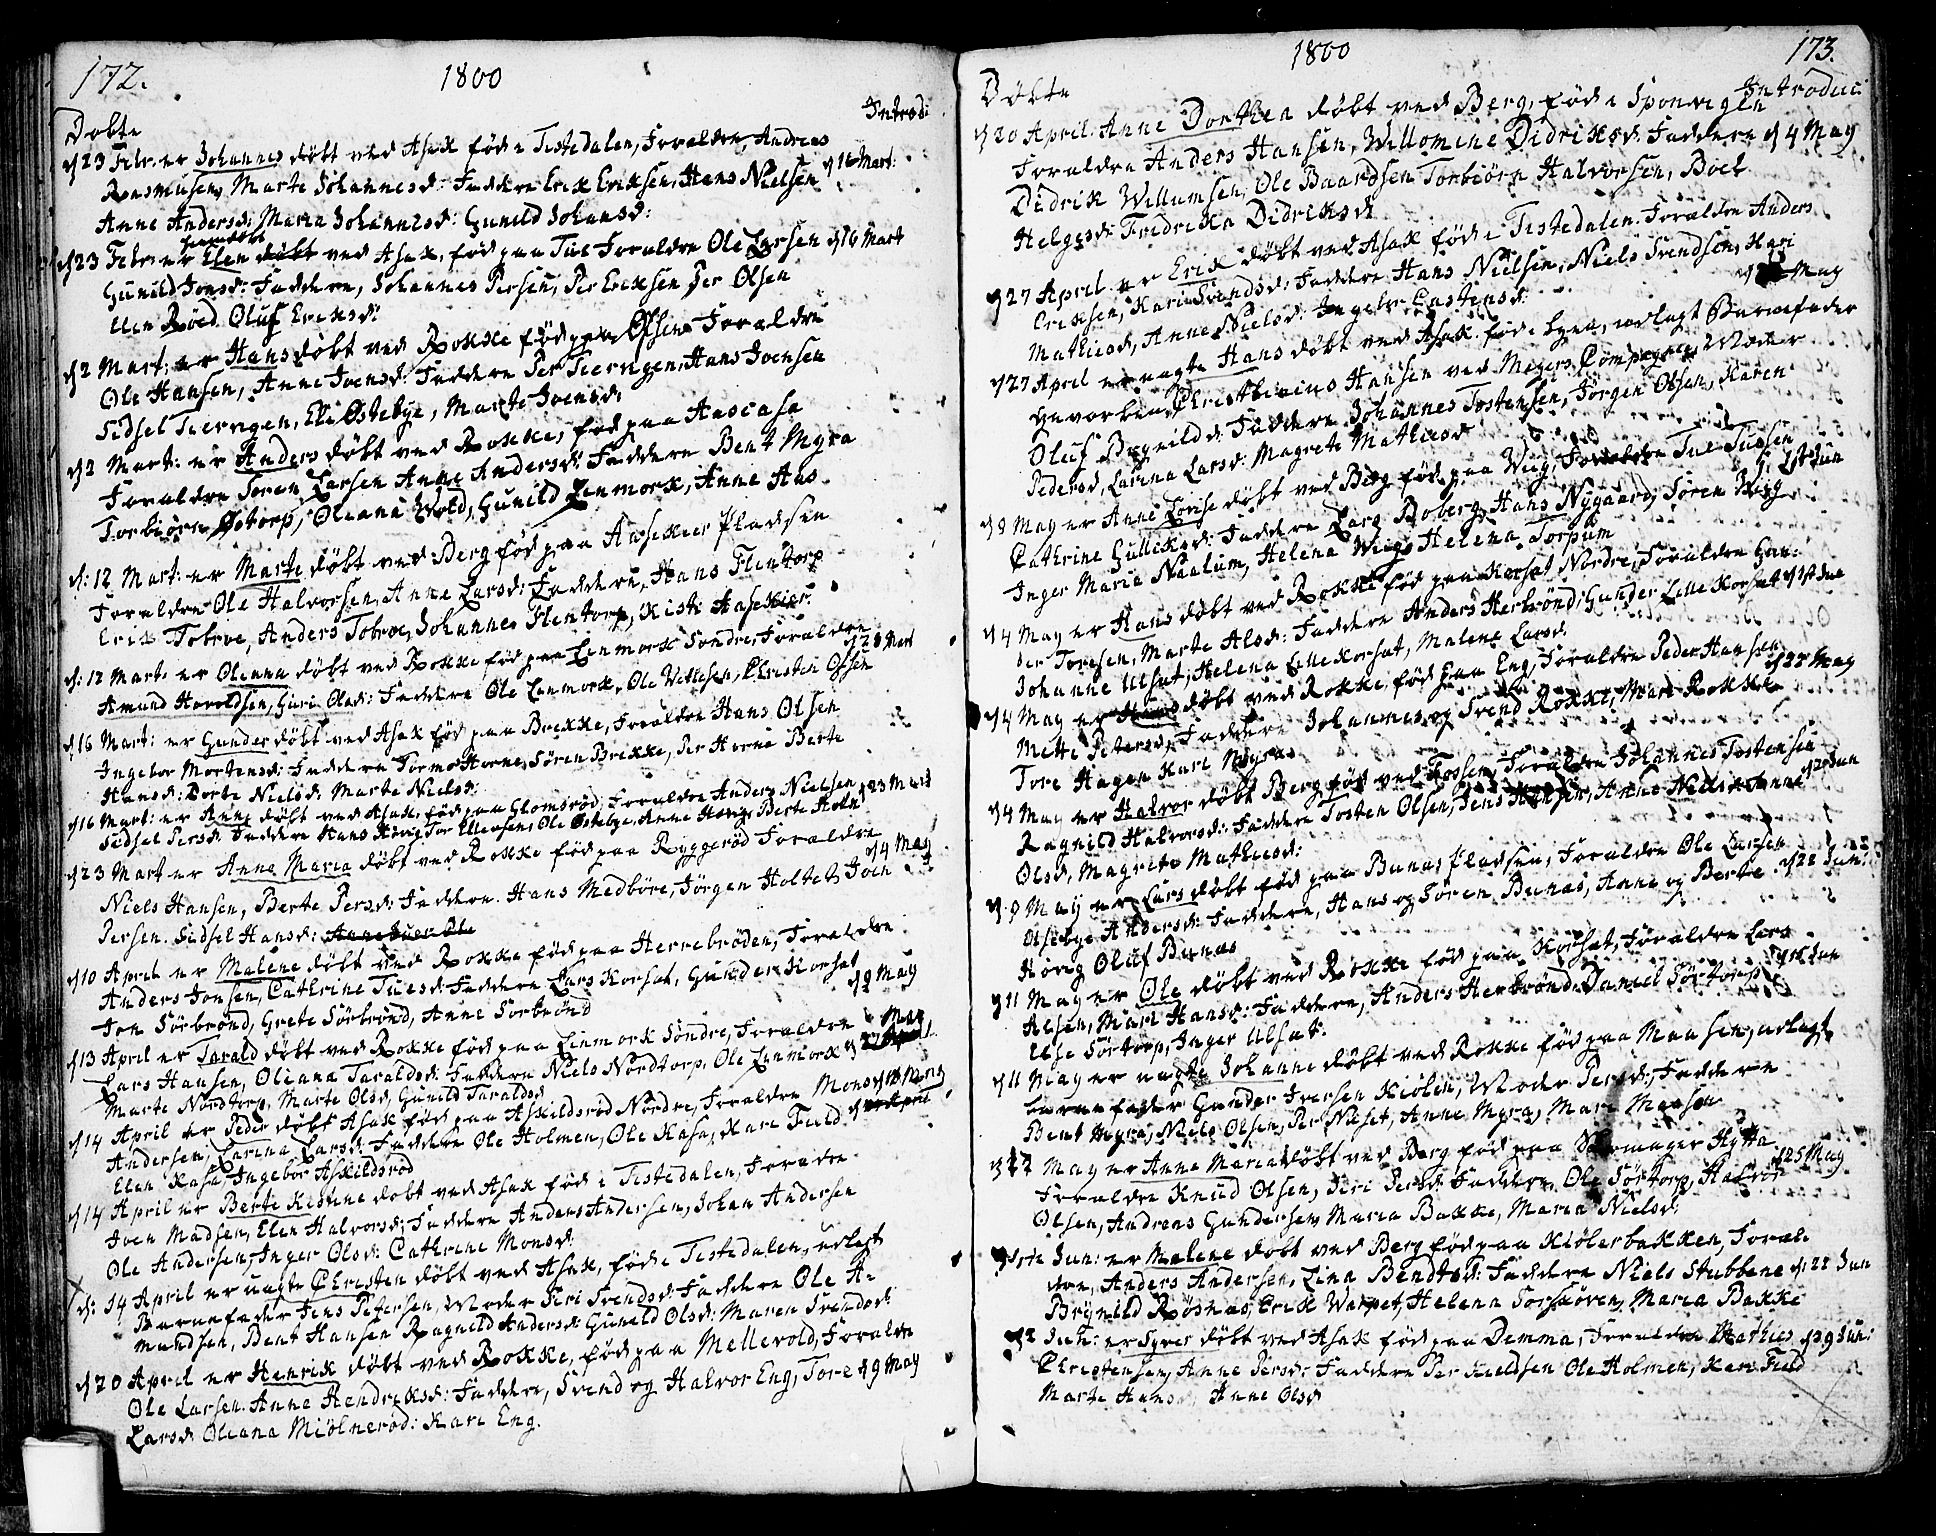 172.
1800
Introd:
Døbte
d 23 Febr. er Johannes døbt ved Asak fød i Tistedalen, Foraldre, Andreas
Rasmusen, Marte Johannesd: Faddere Erik Eriksen, Hans Nielsen d 16 Mart:
Anne Andersd: Maria Johannesd: Gunild Johansd:
d 23 Febr er Elen døbt ved Asak, fød paa Foraldre Ole Larsen d 16 Mart
Gunild Jonsd: Faddere, Johannes Persen, Per Eriksen, Per Olsen
Elen Røed Oluf Eriksd:
d 2 Mart: er Hans døbt ved Rokke fød paa Foraldre
Ole Hansen, Anne Joensd: Faddere Per Hans Joensen
Sidsel Eli Østebye, Marte Joensd:
d 2 Mart: er Anders døbt ved Rokke, fød paa
Foraldre Søren Larsen Anne Andersd: Faddere Bent Myra
Torbiørn Østorp, Oliana Wold, Gunild Lenmork, Anne Aas
d: 12 Mart: er Marte døbt ved Berg fød paa Pladsen
Foraldre Ole Halvorsen, Anne Larsd: Faddere, Hans Flentorp
Erik Tobroe, Anders Tobroe, Johannes Flentorp, Kisti
d: 12 Mart: er Olianna døbt ved Rokke fød paa Lenmork Søndre, Foraldre
d 28 Mart
Amund Haroldsen, Guri Olsd: Faddere Ole Lenmork, Ole Christen Olsen
d 16 Mart: er Gunder døbt ved Asak fød paa Brekke, Foraldre Hans Olsen
Ingebor Mortensd: Faddere Tormo Horne, Søren Brekke, Per Horne Berte
Hansd: Dorte Nielsd: Marte Nielsd:
d 16 Mart: er Anne døbt ved Asak, fød paa Glomsrød, Foraldre Anders Nielsen d 23 Martz
Sidsel Persd: Faddere Hans Tor Ellevsen, Ole Østebye, Anne Berte Holm
d 23 Mart er Anne Maria døbt ved Rokke fød paa Ryggerød Foraldre d 4 May
Niels Hansen, Berte Persd: Faddere. Hans Medbøre, Jørgen Holtet, Joen
Persen. Sidsel Hansd:
d 10 April er Malene døbt ved Rokke fød paa Herrebrøden, Foraldre
Anders Jonsen, Cathrine Tuesd: Faddere Lars Korsat, Gunder Korsat
d 9 May
Jon Sørbrønd, Grete Sørbrønd, Anne Sørbrønd
d 13 April er Tarald døbt ved Rokke fød paa Lenmork Søndre, Foraldre May
Lars Hansen, Oliana Taraldsd: Faddere Niels Nordtorp, Ole Lenmork d
Marte Nordtorp, Marte Olsd, Gunild Taraldsd
d 14 April er Peder døbt Asak fød paa Askildsrød Nordre, Foraldre Mons
Andersen, Larina Larsd: Faddere Ole Holmen, Ole Kasa, Kari Field
Elen Kasa, Ingebor Askildsrød
d 14 April er Berte Kistine døbt ved Asak fød i Tistedalen, Foraldre
Joen Madsen, Elen Halvorsd: Faddere Anders Andersen, Johan Andersen
Ole Andersen, Inger Olsd: Cathrine Monsd:
d: 14 April er uagte Christen døbt ved Asak, fød i Tistedalen, udlagt
Barnefader Jens Petersen, Moder Siri Svendsd: Faddere Ole A-
mundsen, Bent Hansen Ragnild Andersd: Gunild Olsd: Maren Svendsd:
d 20 April er Henrik døbt ved Rokke, fød paa Mellevold, Foraldre
Ole Larsen, Anne Hendriksd: Faddere, Svend og Halvor Eng, Tore d 9 May
Larsd: Oliana Miølnerød: Kari Eng.
1800
173.
Døbte
Introduci
d 20 April Anne Dorthea døbt ved Berg, fød i Sponvigen
Foraldre Anders Hansen, Willomine Didriksd: Faddere d 4 May
Didrik Willumsen, Ole Baardsen Torbiørn Halvorsen, Boel
Helgesd: Fredrika Didriksd:
d 27 April er Erik døbt ved Asak fød i Tistedalen. Foraldre Anders
Eriksen, Kari Svendsd: Faddere Hans Nielsen, Niels Svendsen, Kari
May
Mathiesd, Anne Nielsd: Ingebr:
d 27 April er uagte Hans døbt ved Asak fød i byen, udlagt Barnefader
Christhinius Hansen ved Compagnie, Moder
Oluf Faddere Johannes Tostensen, Jørgen Olsen, Karen
Pedersd, Larina Larsd: Magrete Mathiesd
d 9 May er Anne Lovise døbt ved Berg fød paa Wiig, Foraldre
Cathrine Gulliksd: Faddere Lars Boberg, Hans Nygaard, Søren Wiig
Inger Maria Naalum, Helena Wiig, Helena Torpum
d 4 May er Hans døbt ved Rokke fød paa Korsat Nordre, Foraldre Gun-
der Toresen, Marte Alsd: Faddere Anders Herbrønd, Gunder Lelle Korsat
Johanne Ulsat, Helena Lelle Korsat, Malene Larsd:
d 4 May er døbt ved Rokke, fød paa Eng, Foraldre Peder Hansen d 22 May
Mette Petersd: Faddere Johannes og Svend Rokke, Mari Rokke
Tore Hagen Kari Myra
d 4 May er Halvor døbt Berg fød ved Fossen, Foraldre Johannes Tostensen
Ragnild Halvorsd: Faddere Tosten Olsen, Jens Hansen, Anne Nielsd: Anne
Olsd, Magrete Mathiesd:
d 9 May er Lars døbt fød paa Bunas Pladsen, Foraldre Ole Larsen
Olsebye Andersd: Faddere, Hans og Søren Bunas, Anne og Berte d 22 Jun:
Oluf Bunas
d 11 May er Ole døbt ved Rokke fød paa Korsat, Foraldre Lars
Alsen, Mari Hansd: Faddere, Anders Herbrønd, Daniel Sørtorp
Else Sørtorp, Inger Ulsat:
d 11 May er uagte Johanne døbt ved Rokke fød paa Maasen, udlagt
barnefader Gunder Iversen Kiølen, Moder Persd:, Faddere
Bent Myra, Niels Olsen, Per Anne Myra, Mari Maasen
May er Anne Maria døbt ved Berg fød paa Skomager Hytta
d 25 May
Foraldre Knud Olsen, Siri Persd: Faddere, Ole Sørtorp, Halvor
Olsen, Andreas Gundersen, Maria Bakke, Maria Nielsd:
Jun: er Malene døbt ved Berg fød paa Kiølerbakken, Foral-
dre, Anders Andersen, Lina Bendtsd: Faddere Niels Stubbene d 22 Jun
Brynild Røsnas, Erik Helena Maria Bakke
d 2 Jun: er Syver døbt ved Asak fød paa Demma, Foraldre Mathies d 29 Jun:
Christensen, Anne Persd: Faddere Per Ole Holmen, Kari Field
Marte Hansd, Anne Olsd